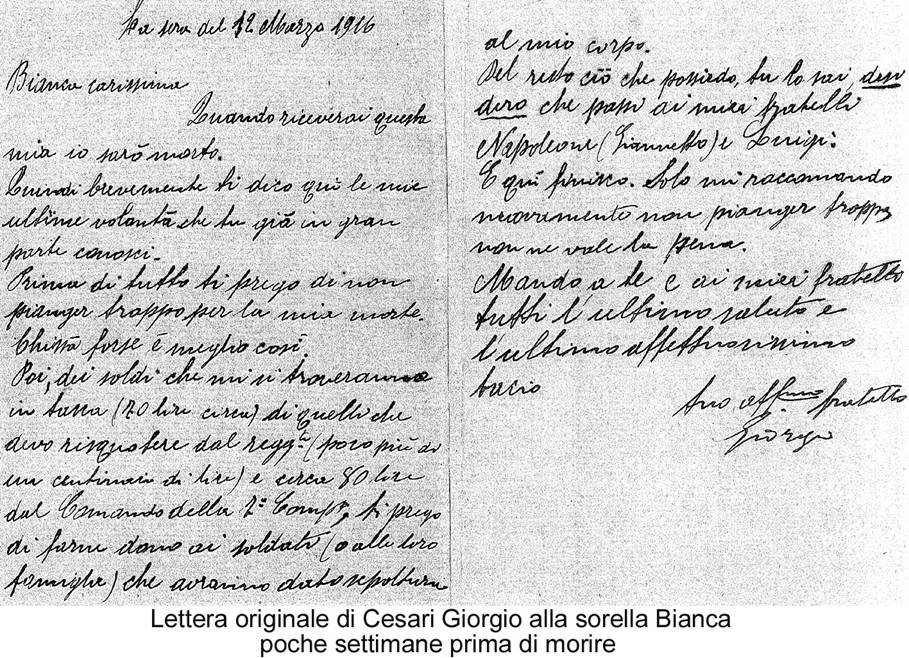 La sera del 12 Marzo 1916
Bianca carissima
Quando riceverai questa
mia io sarò morto.
Quindi brevemente ti dico qui le mie
ultime volontà che tu già in gran
parte conosci.-
Prima di tutto ti prego di non
pianger troppo per la mia morte.
Chissà forse è meglio così.
Poi, dei soldi che mi si troveranno
in tassa (70 lire circa) di quelli che
devo risquotere dal regg.to (poco più di
un centinaio di lire) e circa 80 lire
dal Comando della 7ª Comp, ti prego
di farne dono ai soldati (o alle loro
famiglie) che avranno dato sepoltura
al mio corpo.
Del resto ciò che possiedo, tu lo sai, desi
dero che passi ai miei fratelli
Napoleone (Giannetto) e Luigi.
E quì finisco. Solo mi raccomando
nuovamente non pianger troppo,
non ne vale la pena.
Mando a te e ai miei fratelli
tutti l'ultimo saluto e
l'ultimo affettuosissimo
bacio
Tuo aff.mo fratello
Giorgio
Lettera originale di Cesari Giorgio alla sorella Bianca
poche settimane prima di morire